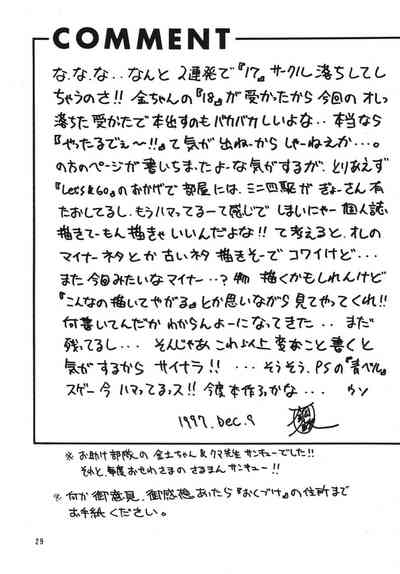 COMMENT
な、な、な‥なんと 2連発で『17』サークル落ちしてし
ちゃうのさ!! 金ちゃんの『18』が受かったから今回のオレっ
落ちた受かったで本出すのもバカバカしいよな‥本当なら
『やったるでぇ〜!!』て気が出ねーからしゃーねぇか…。
の方のページが書いちまったよーな気がするが、とりあえず
『Let's & Go』のおかげで部屋には、ミニ四駆がぎょーさん有
たおしてるし、もうハマってるーて感じでしまいにゃー個人誌
描きてーもん描きゃいいんだよな!!て考えると、オレの
マイナーネタとか古いネタ描きそーでコワイけど…
また今回みたいなマイナー‥?物描くかもしれんけど
『こんなの描いてやがる』とか思いながら見てやってくれ!!
何書いてんだかわからんよーになってきた‥まだ
残ってるし…そんじゃあこれ以上変なこと書くと
気がするからサイナラ!!…そうそう、PSの『青ベル』
スゲー今ハマってるっス!!今度本作ろかな… ウソ
1997. Dec. 9
※お助け部隊の金土ちゃん&クマ先生サンキューでした!!
それと、毎度おせわさまのさるまんサンキュー!!
※何か御意見、御感想あったら『おくづけ』の住所まで
お手紙ください。
29